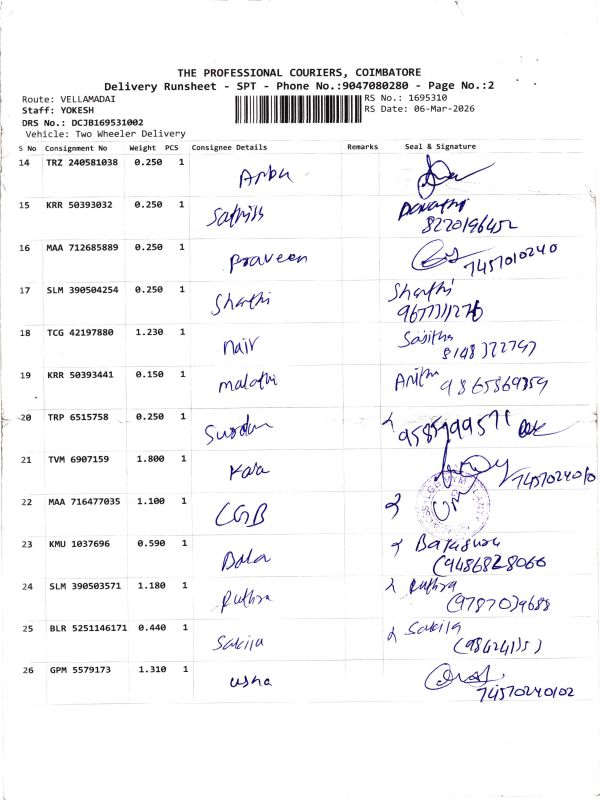 THE PROFESSIONAL COURIERS, COIMBATORE
Delivery Runsheet - SPT - Phone No.:9047080280 - Page No.:2
Route: VELLAMADAI RS No.: 1695310
Staff: YOKESH RS Date: 06-Mar-2026
DRS No.: DCJB169531002
Vehicle: Two Wheeler Delivery
S No Consignment No Weight PCS Consignee Details Remarks Seal & Signature
14 TRZ 240581038 0.250 1
15 KRR 50393032 0.250 1 Sathish
8220196452
16 MAA 712685889 0.250 1 Praveen
7457010240
17 SLM 390504254 0.250 1 Sharthi Sharthi
9677311276
18 TCG 42197880 1.230 1 Nair Sasitha
19 KRR 50393441 0.150 1 malathi Anitha 9865869859
20 TRP 6515758 0.250 1
21 TVM 6907159 1.800 1 Kala
22 MAA 716477035 1.100 1 CGB
23 KMU 1037696 0.590 1 Bala
24 SLM 390503571 1.180 1 Ruthra Ruthra
25 BLR 5251146171 0.440 1 Sakila Sakila
26 GPM 5579173 1.310 1 usha
74570240102